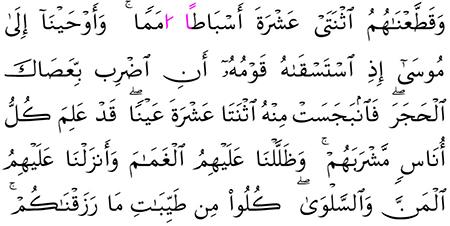 وَقَطَّعْنَـٰهُمُ ٱثْنَتَىْ عَشْرَةَ أَسْبَاطًا أُمَمًا ۚ وَأَوْحَيْنَآ إِلَىٰ
مُوسَىٰٓ إِذِ ٱسْتَسْقَىٰهُ قَوْمُهُۥٓ أَنِ ٱضْرِب بِّعَصَاكَ
ٱلْحَجَرَ ۖ فَٱنۢبَجَسَتْ مِنْهُ ٱثْنَتَا عَشْرَةَ عَيْنًا ۖ قَدْ عَلِمَ كُلُّ
أُنَاسٍ مَّشْرَبَهُمْ ۚ وَظَلَّلْنَا عَلَيْهِمُ ٱلْغَمَـٰمَ وَأَنزَلْنَا عَلَيْهِمُ
ٱلْمَنَّ وَٱلسَّلْوَىٰ ۖ كُلُوا۟ مِن طَيِّبَـٰتِ مَا رَزَقْنَـٰكُمْ ۚ